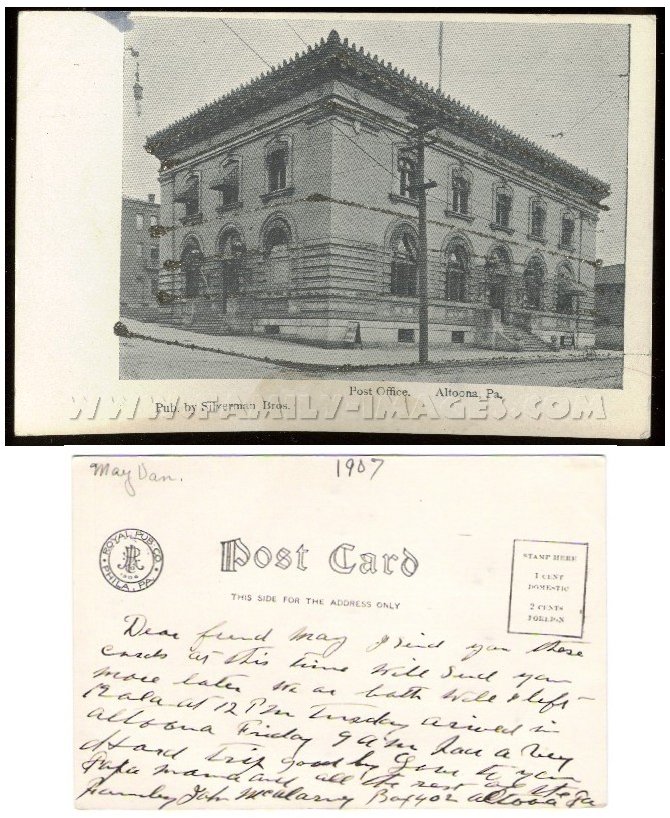 Post Office. Altoona, Pa.
Pub. by Silverman Bros.
WWW.FAMILY-IMAGES.COM
May Van.
1907
ROYAL PUB. CO.
PHILA, PA.
Post Card
THIS SIDE FOR THE ADDRESS ONLY
STAMP HERE
1 CENT
DOMESTIC
2 CENTS
FOREIGN
Dear frend May I send you these
cards at this time Will Send you
more later We ar both Well I left
at 12 PM Tusday arived in
altoona Friday 9 am had a Very
Hard Trip good by to you
Papa mama and all the rest
family John Box 402 altoona Pa